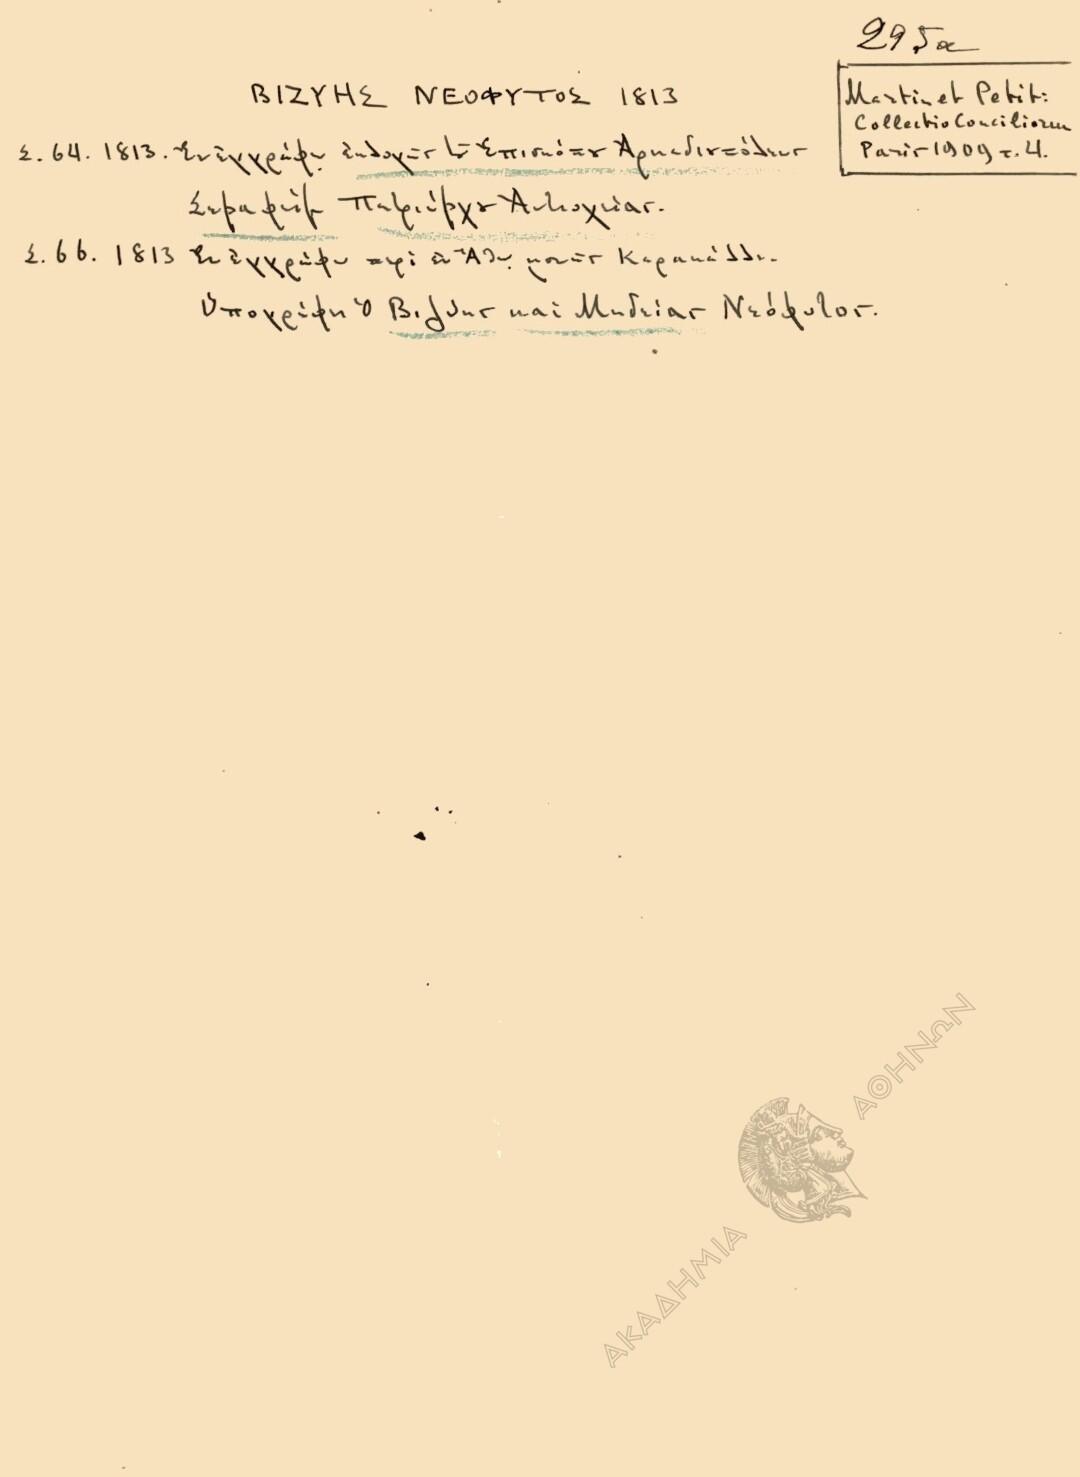 295α
Martin et Petit:
Collectio Conciliorum
Paris 1909 τ. 4.
ΒΙΖΥΗΣ ΝΕΟΦΥΤΟΣ 1813
Σ. 64. 1813. Ἐν ἐγγράφῳ ἐκλογῆς τοῦ Ἐπισκόπου Ἀρκαδιουπόλεως
Σεραφεὶμ Πατριάρχου Ἀντιοχείας.
Σ. 66. 1813 Ἐν ἐγγράφῳ περὶ ἐν Ἄθῳ μονῆς Καρακάλλου.
Ὑπογράφει ὁ Βιζύης καὶ Μηδείας Νεόφυτος.
ΑΚΑΔΗΜΙΑ ΑΘΗΝΩΝ